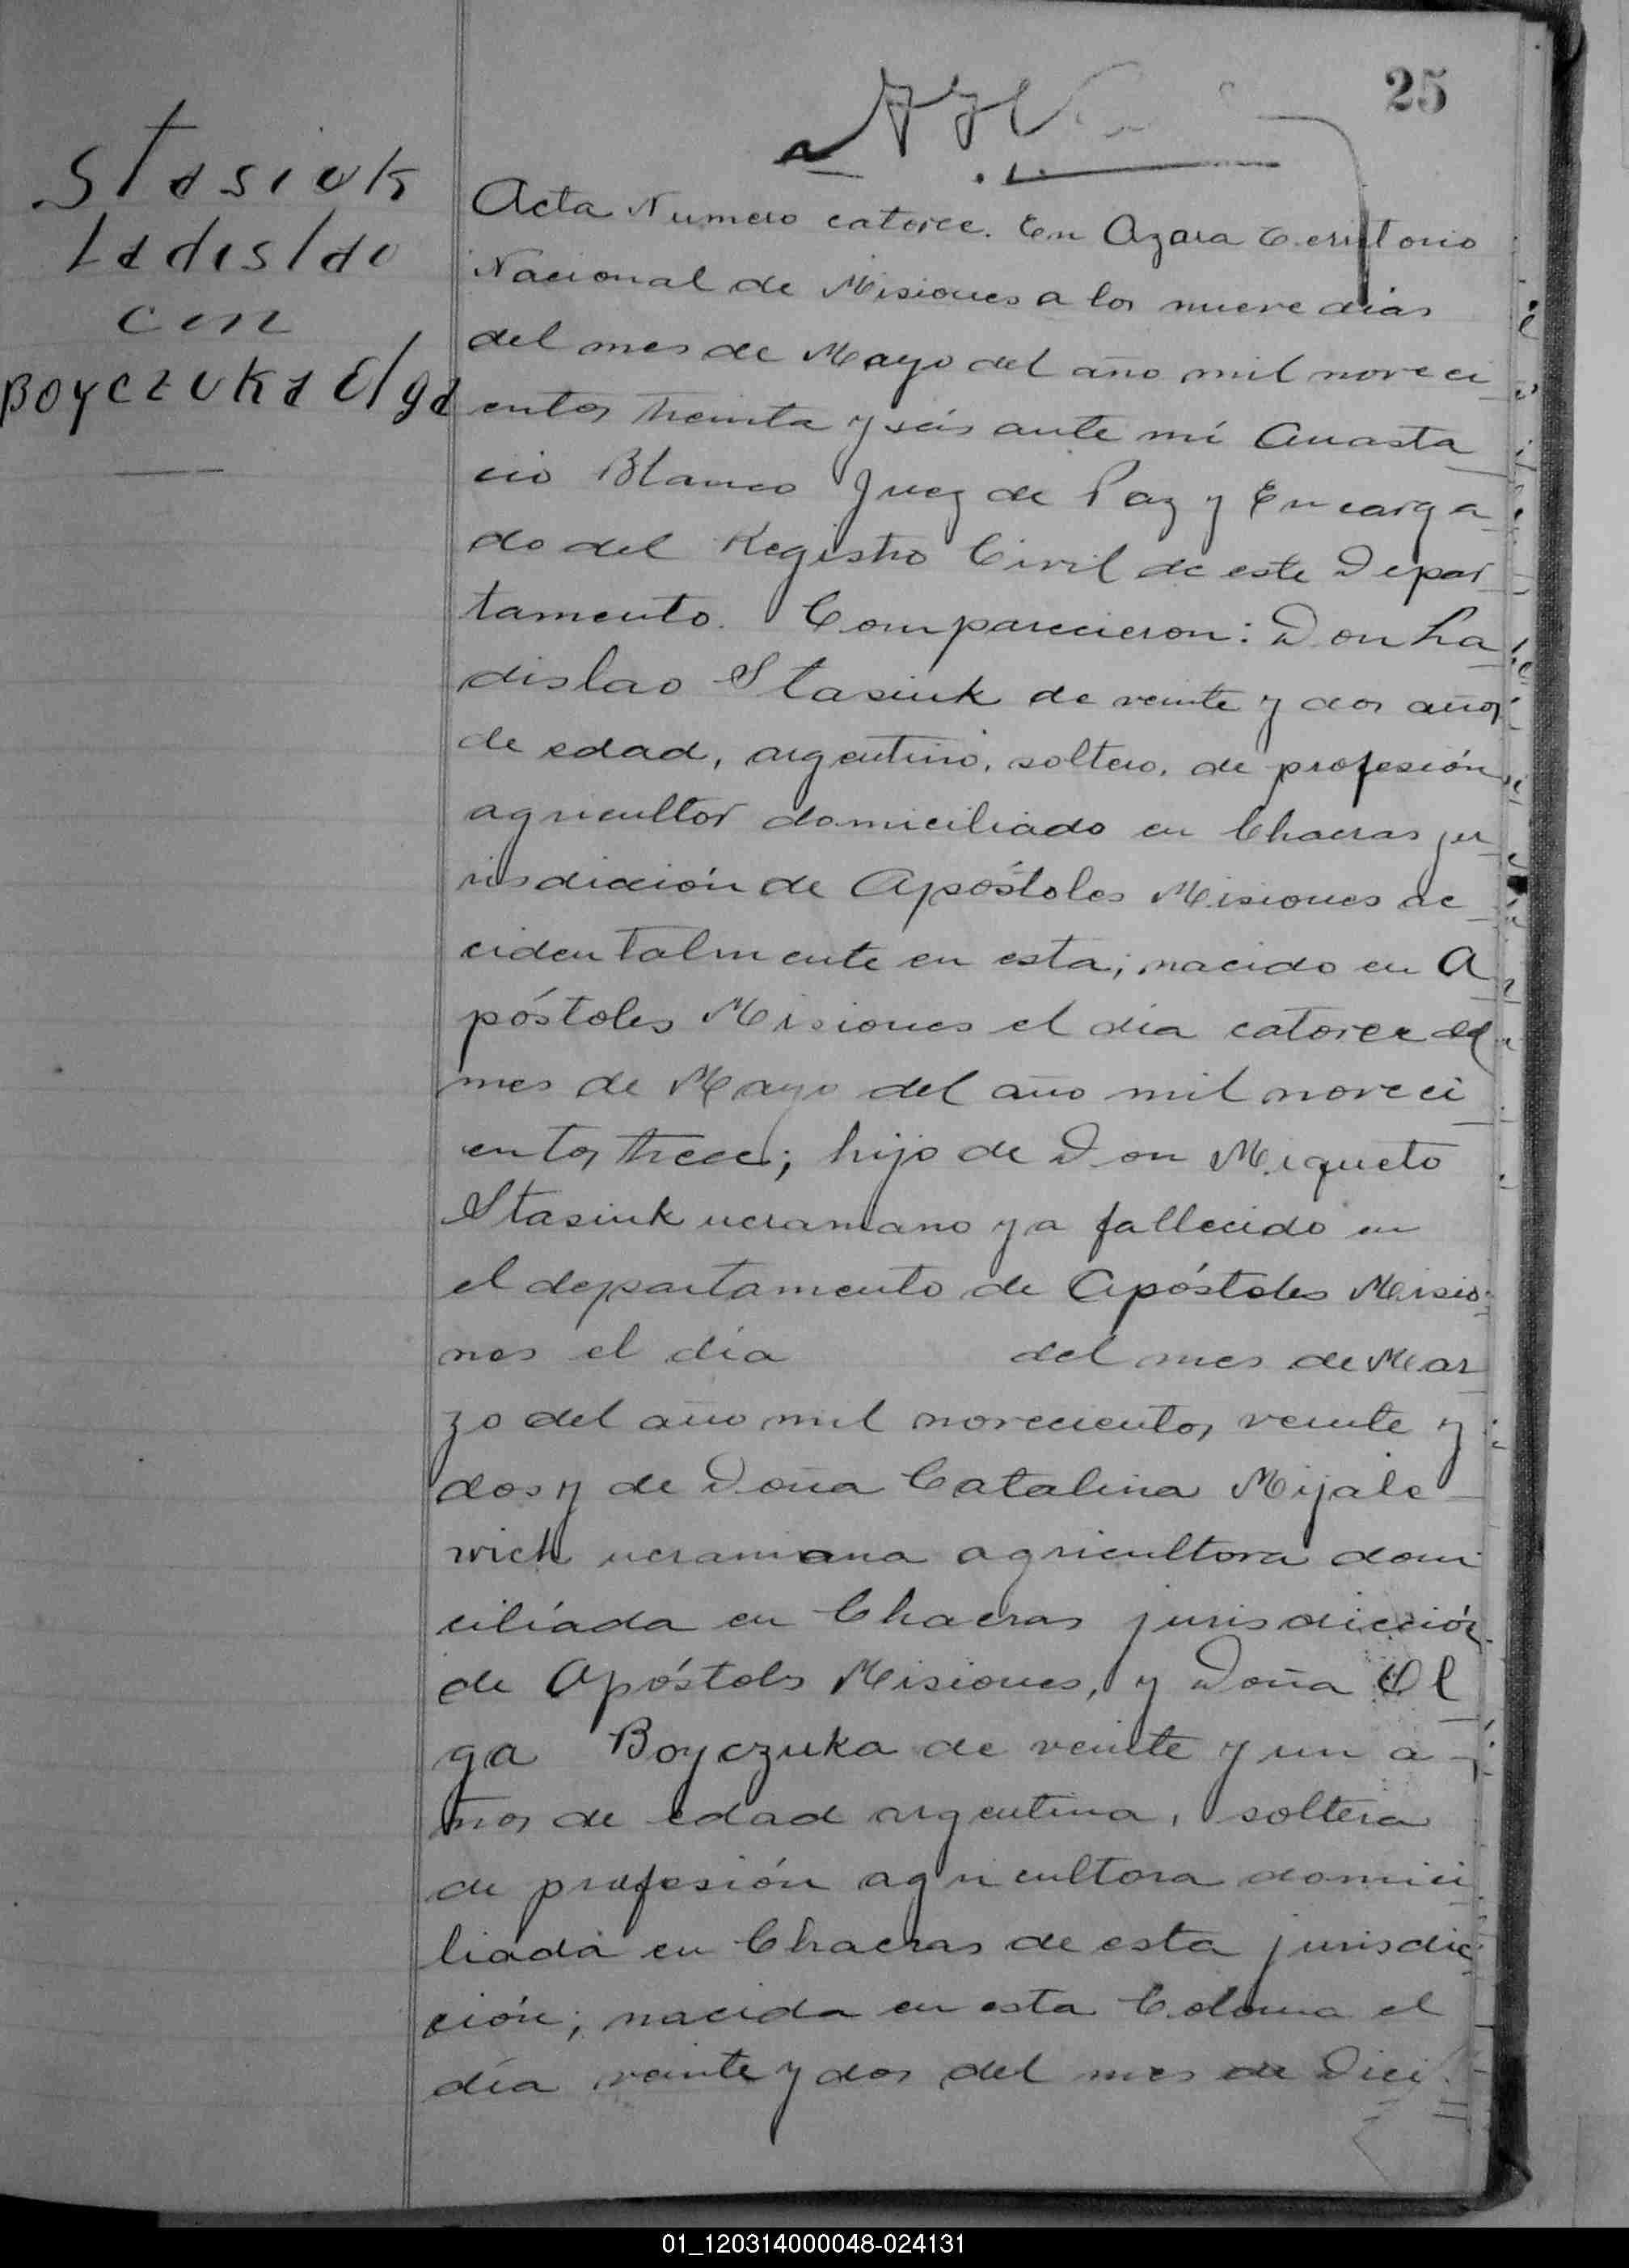 25
Stasiuk
Ladislao
con
Boyczuka Elga
Acta Numero catorce. En Azara Territorio
Nacional de Misiones a los nueve dias
del mes de Mayo del año mil noveci
entos treinta y seis ante mí Anasta
cio Blanco Juez de Paz y Encarga
do del Registro Civil de este Depar
tamento. Comparecieron: Don La
dislao Stasiuk de veinte y dos años
de edad, argentino, soltero, de profesión
agricultor domiciliado en Chacras ju
risdicción de Apóstoles Misiones ac
cidentalmente en esta; nacido en A
póstoles Misiones el día catorce del
mes de Mayo del año mil noveci
entos trece; hijo de Don Miqueto
Stasiuk ucraniano ya fallecido en
el departamento de Apóstoles Misio
nes el día del mes de Mar
zo del año mil novecientos veinte y
dos y de Doña Catalina Mijale
wich ucraniana agricultora domi
ciliada en Chacras jurisdicción
de Apóstols Misiones, y Doña Ol
ga Boyczuka de veinte y un a
ños de edad argentina, soltera
de profesión agricultora domici
liada en Chacras de esta jurisdic
ción; nacida en esta Colonia el
día veinte y dos del mes de Dici
01_120314000048-024131